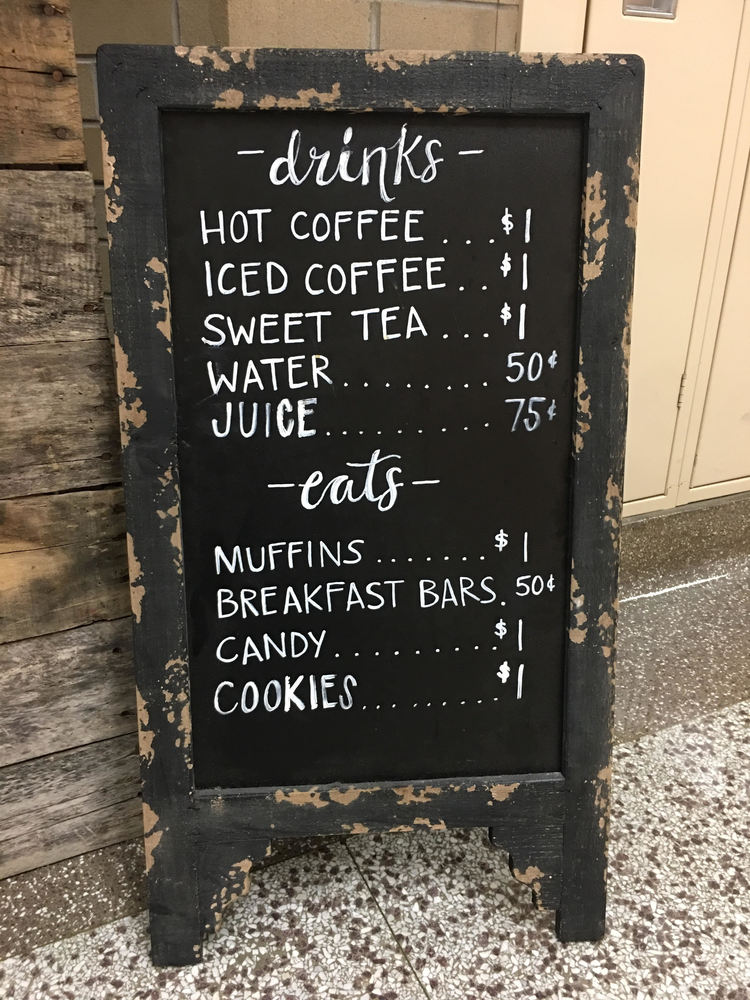 -drinks-
HOT COFFEE ... $1
ICED COFFEE .. $1
SWEET TEA ... $1
WATER ........ 50¢
JUICE .......... 75¢
-eats-
MUFFINS ....... $1
BREAKFAST BARS. 50¢
CANDY .......... $1
COOKIES ......... $1